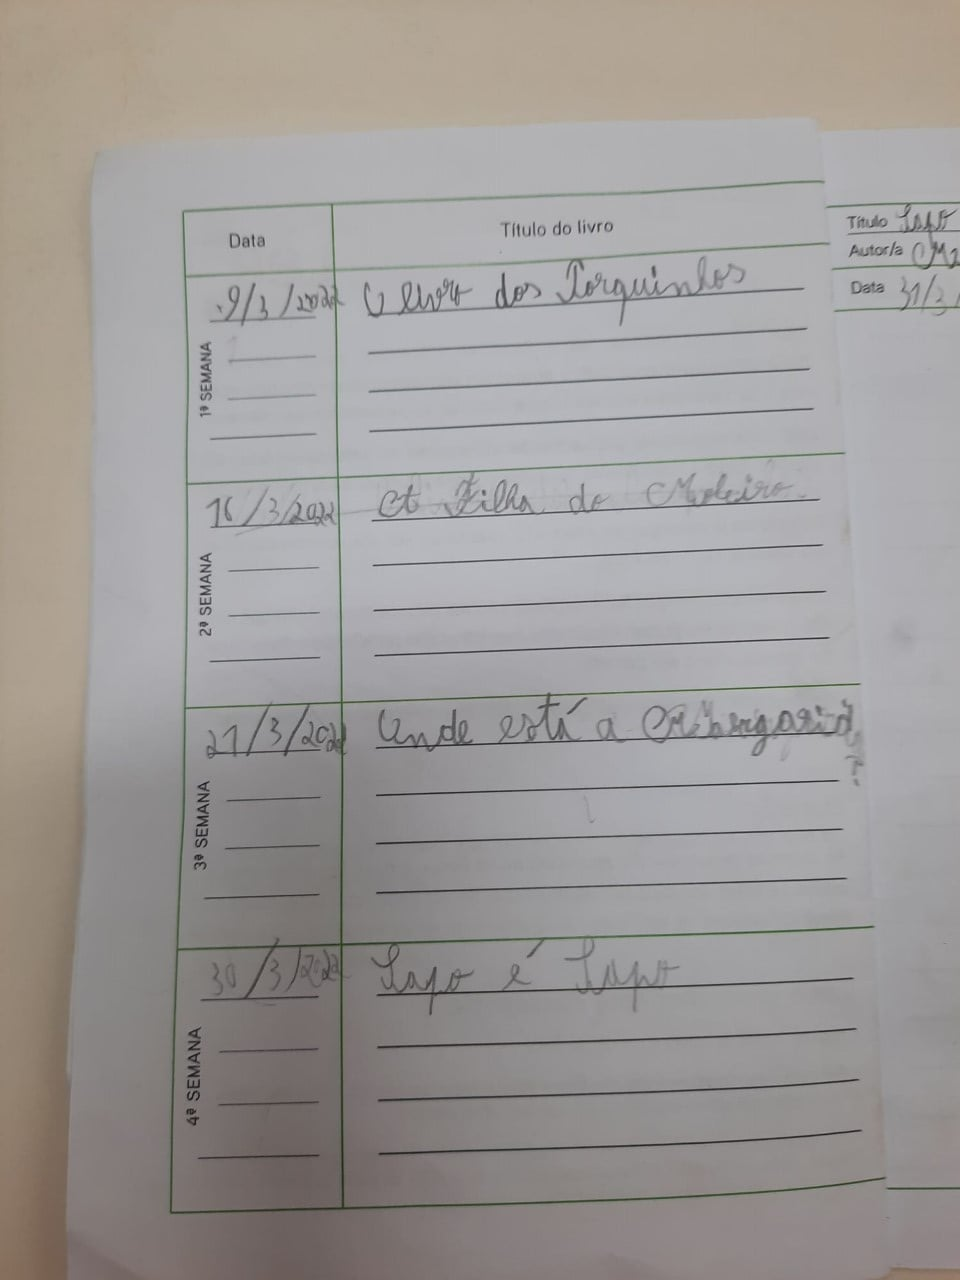 Data Título do livro
9/3/2022 O livro dos Porquinhos
1ª SEMANA
16/3/2022 A Filha do Moleiro.
2ª SEMANA
21/3/2022 Onde está a Margarida
?
3ª SEMANA
30/3/2022 Sapo é Sapo
4ª SEMANA
Título Sapo
Autor/a
Data 31/3/